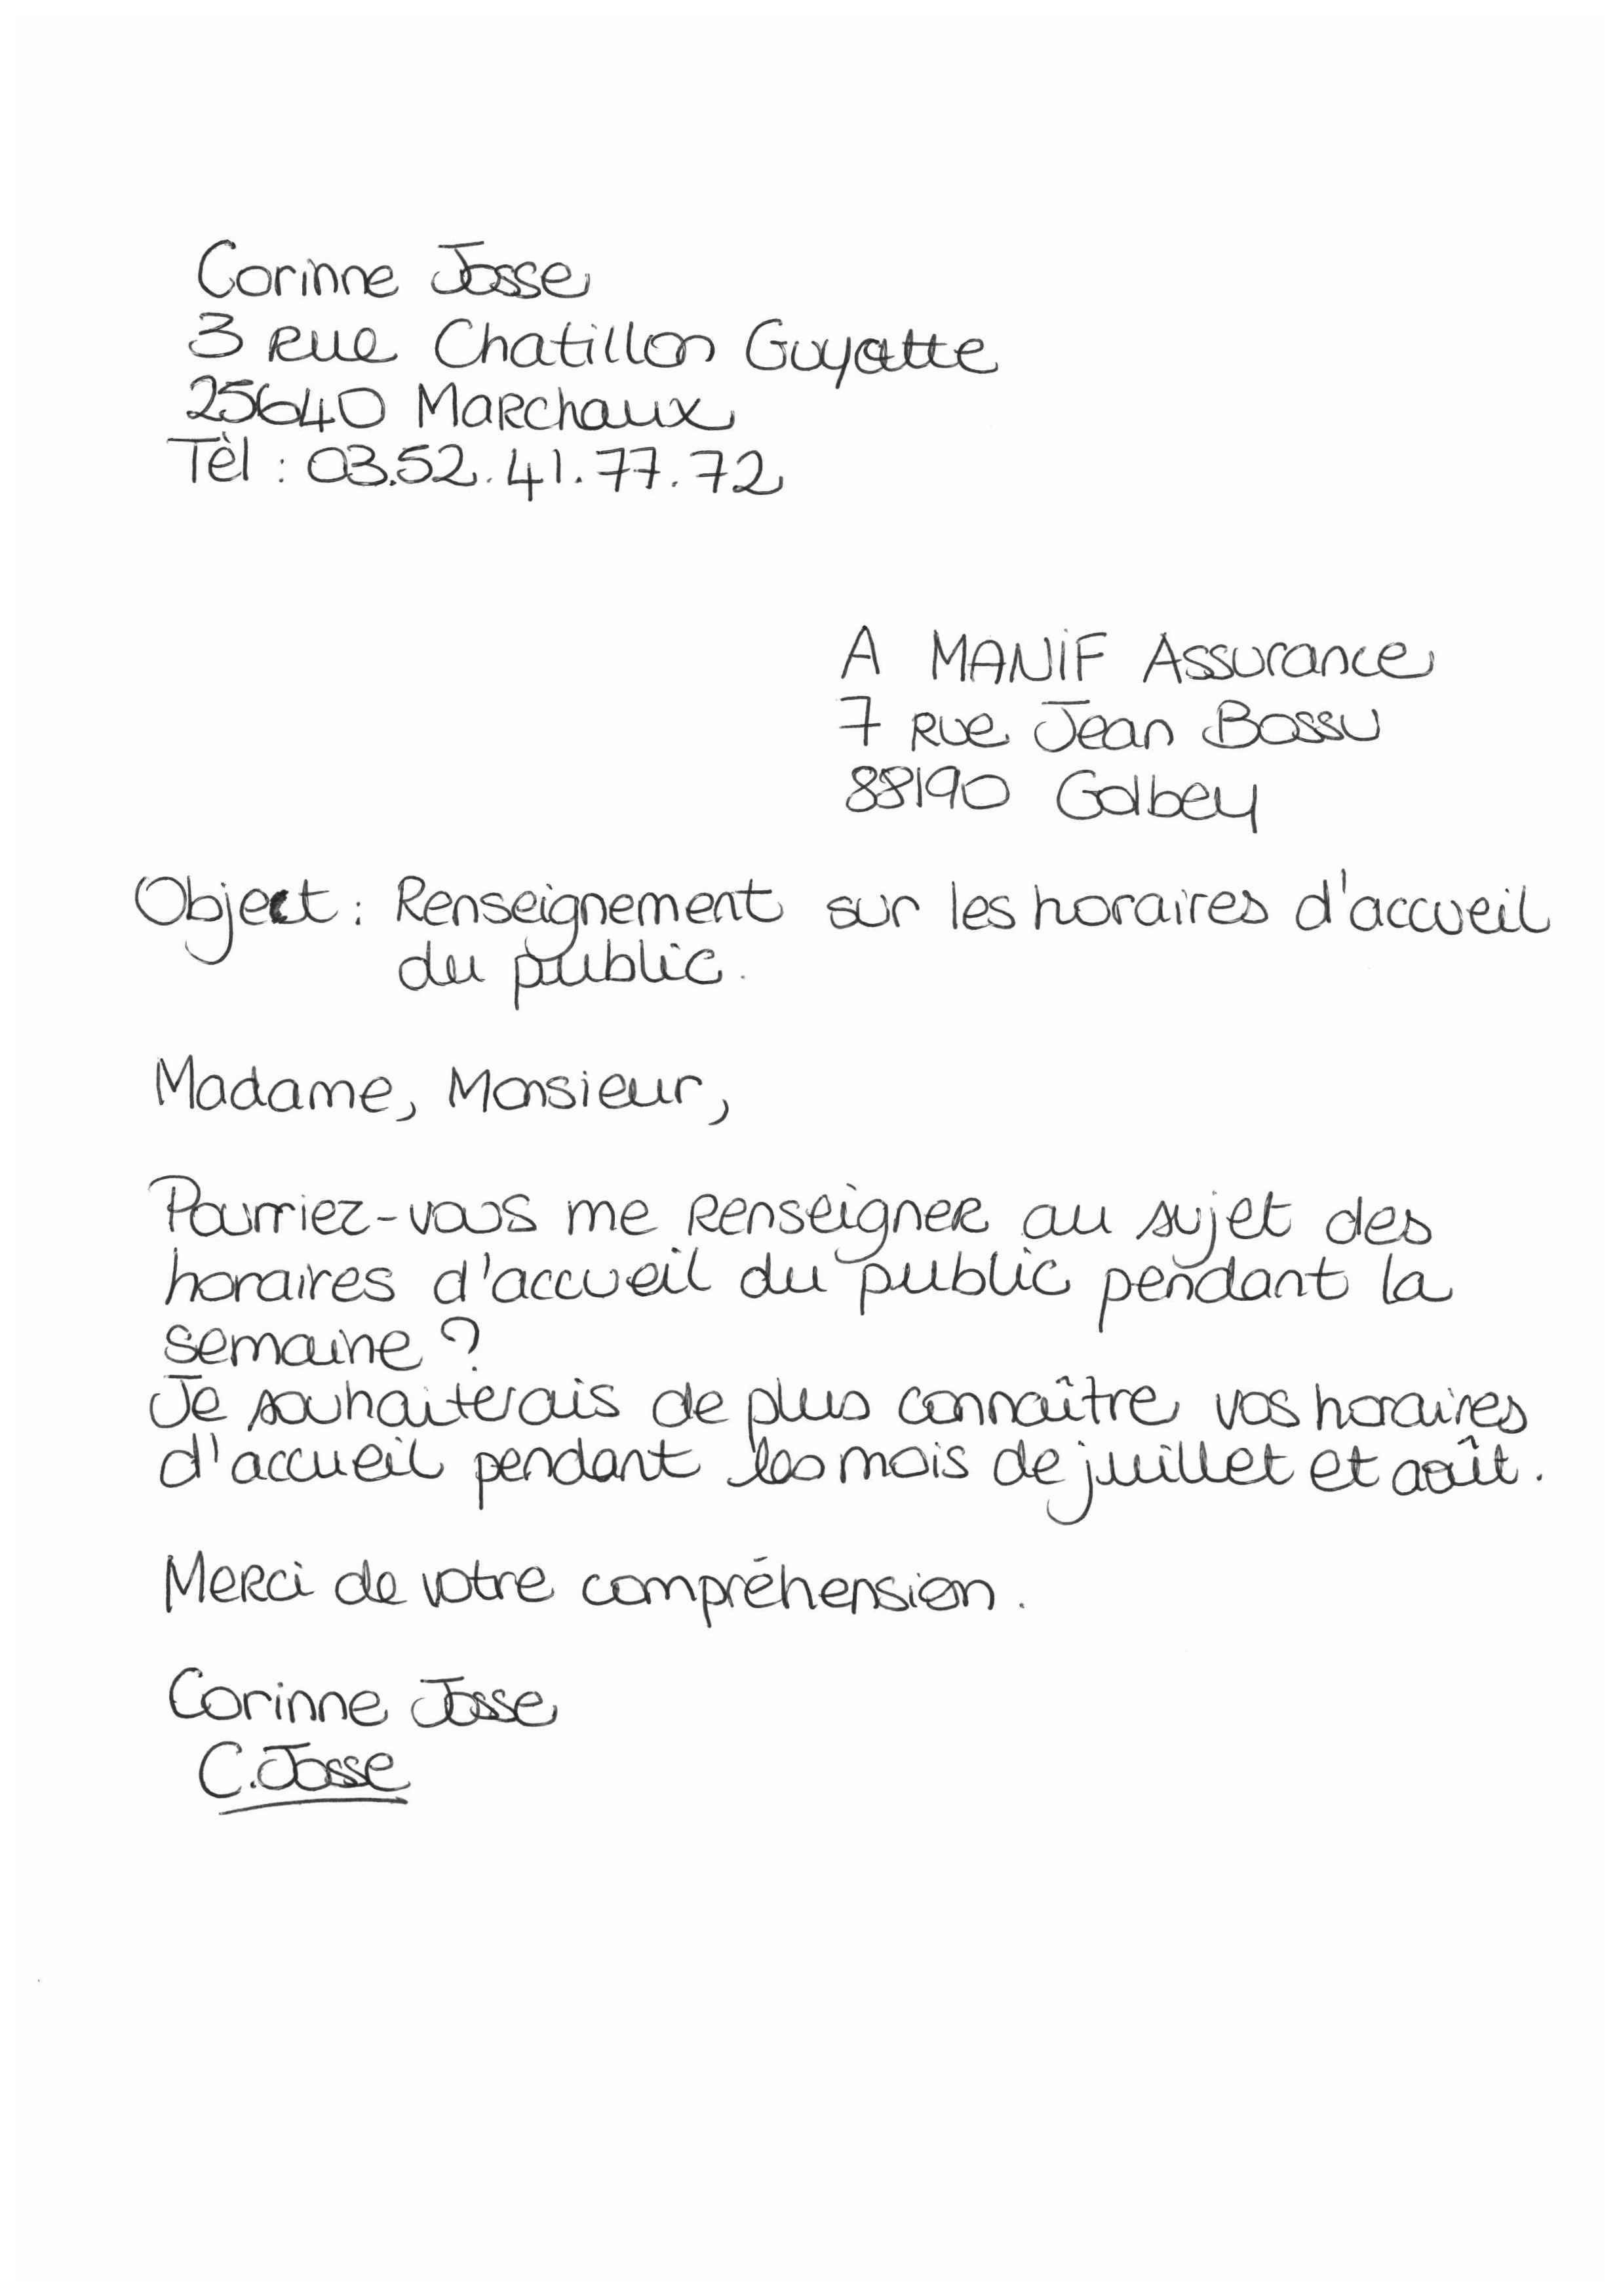 Corinne Josse
3 Rue Chatillon Guyotte
25640 Marchaux
Tèl : 03.52.41.77.72
A MANIF Assurance
7 Rue Jean Bossu
88190 Golbey
Object : Renseignement sur les horaires d'accueil
du public.
Madame, Monsieur,
Pourriez-vous me renseigner au sujet des
horaires d'accueil du public pendant la
semaine ?
Je souhaiterais de plus connaître vos horaires
d'accueil pendant les mois de juillet et août.
Merci de votre compréhension.
Corinne Josse
C. Josse